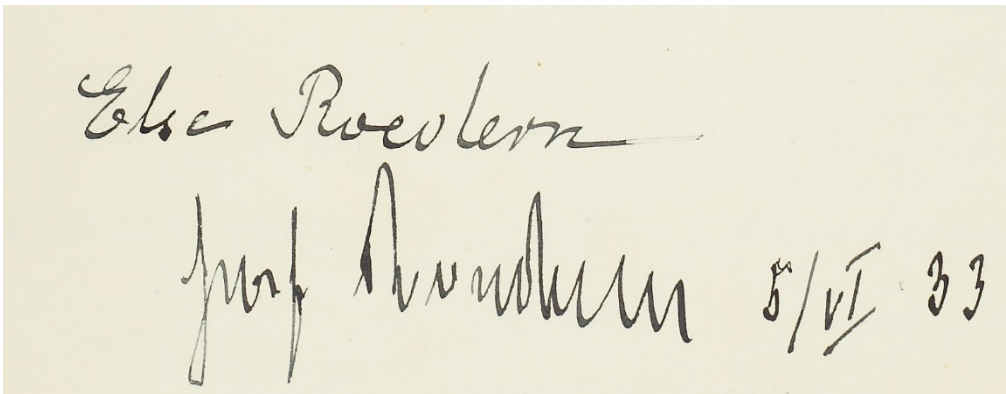 Else Roedern
Josef Roedern 5/VI 33